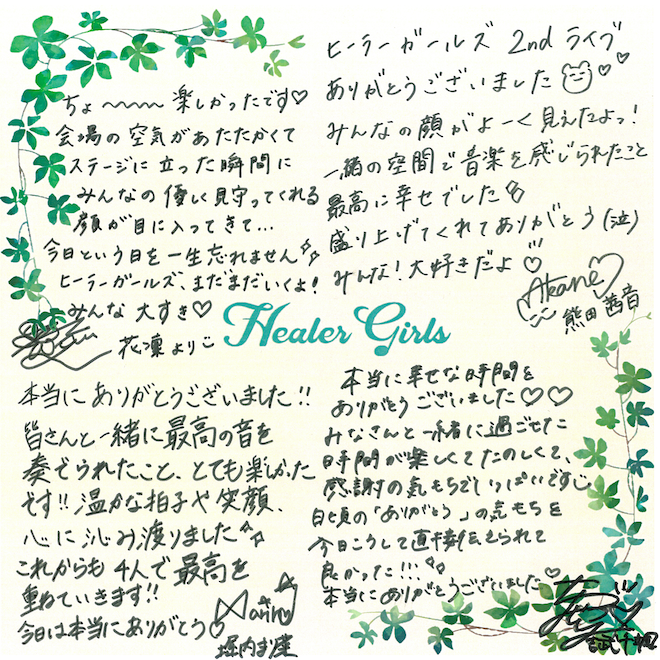 ちょ〜〜〜楽しかったです♡
会場の空気があたたかくて
ステージに立った瞬間に
みんなの優しく見守ってくれる
顔が目に入ってきて...
今日という日を一生忘れません
ヒーラーガールズ、まだまだいくよ！
みんな大すき♡
花凜よりこ
ヒーラーガールズ 2nd ライブ
ありがとうございました♡♡
みんなの顔がよーく見えたよっ！
一緒の空間で音楽を感じられたこと
最高に幸せでした
盛り上げてくれてありがとう(泣)
みんな！大好きだよ♡
Akane
熊田茜音
Healer Girls
本当にありがとうございました！！
皆さんと一緒に最高の音を
奏でられたこと、とても楽しかった
です!!温かな拍子や笑顔、
心に沁み渡りました
これからも4人で最高を
重ねていきます!!
今日は本当にありがとう♡
Marin
堀内まり菜
本当に幸せな時間を
ありがとうございました♡♡
みなさんと一緒に過ごせた
時間が楽しくてたのしくて、
感謝の気もちでいっぱいです
日頃の「ありがとう」の気もちを
今日こうして直接伝えられて
良かった!!!
本当にありがとうございました♡
吉武千颯